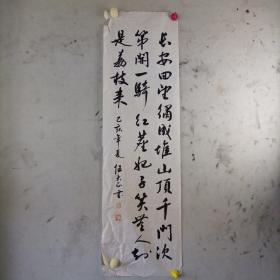 长安回望绣成堆山顶千门次
第开一骑红尘妃子笑无人知
是荔枝来 己亥年夏